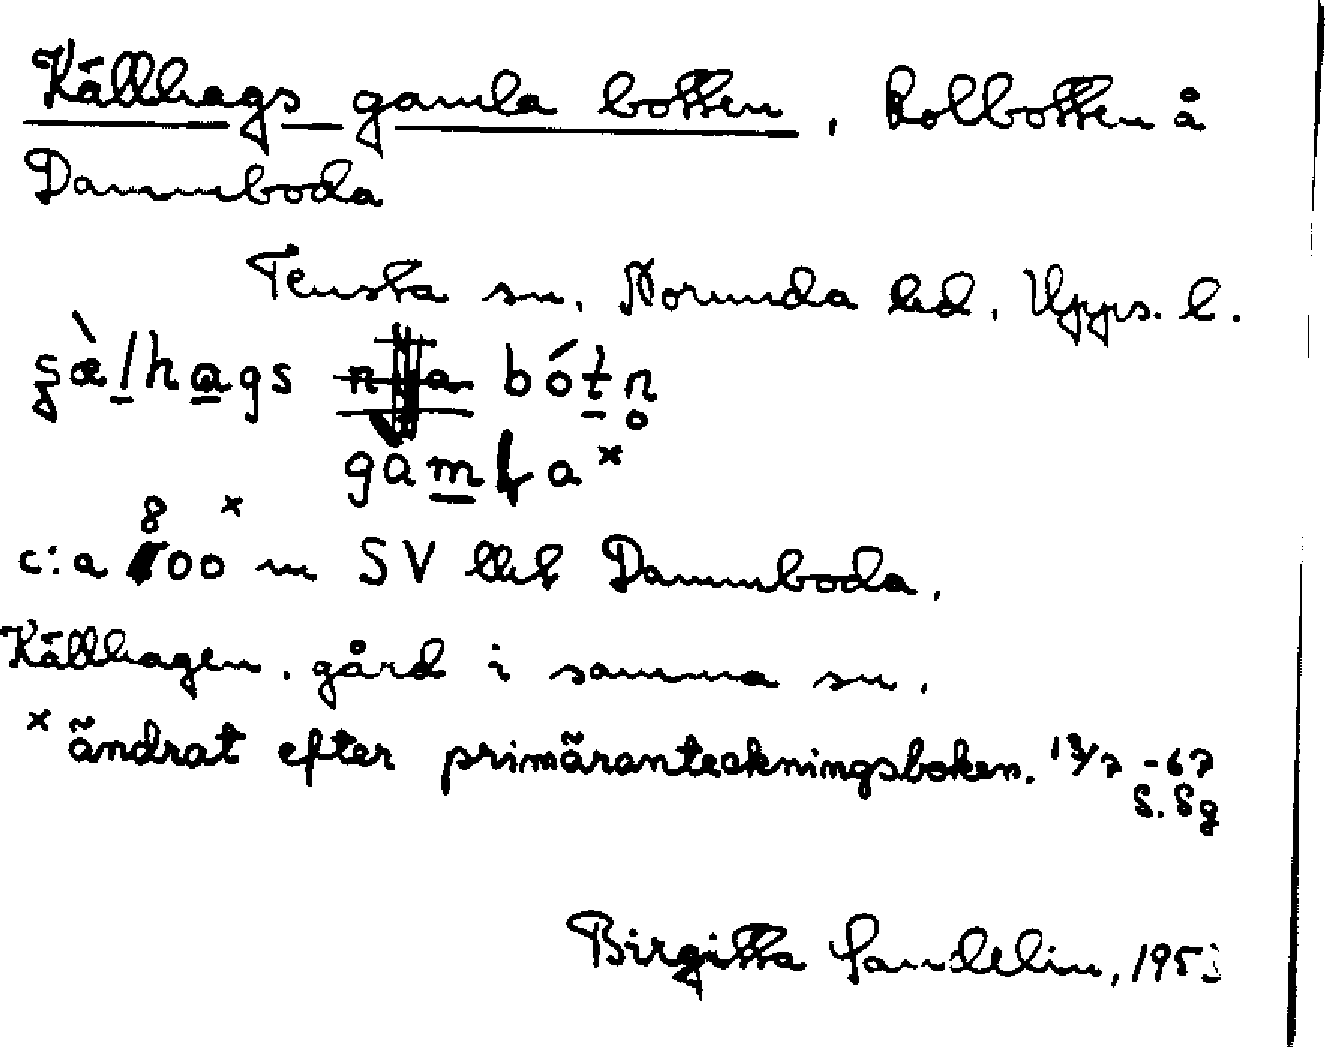 Källhags gamla botten, Kolbotten å
Dammboda
Tensta sn, Norunda hd, Upps. l.
bótn̥
gamla ˣ
c:a 800 ˣ m SV Dammboda.
Källhagen, gård i samma sn.
ˣ ändrat efter primäranteckningsboken. 13/7 -67
S. Sg
Birgitta Sandelin,